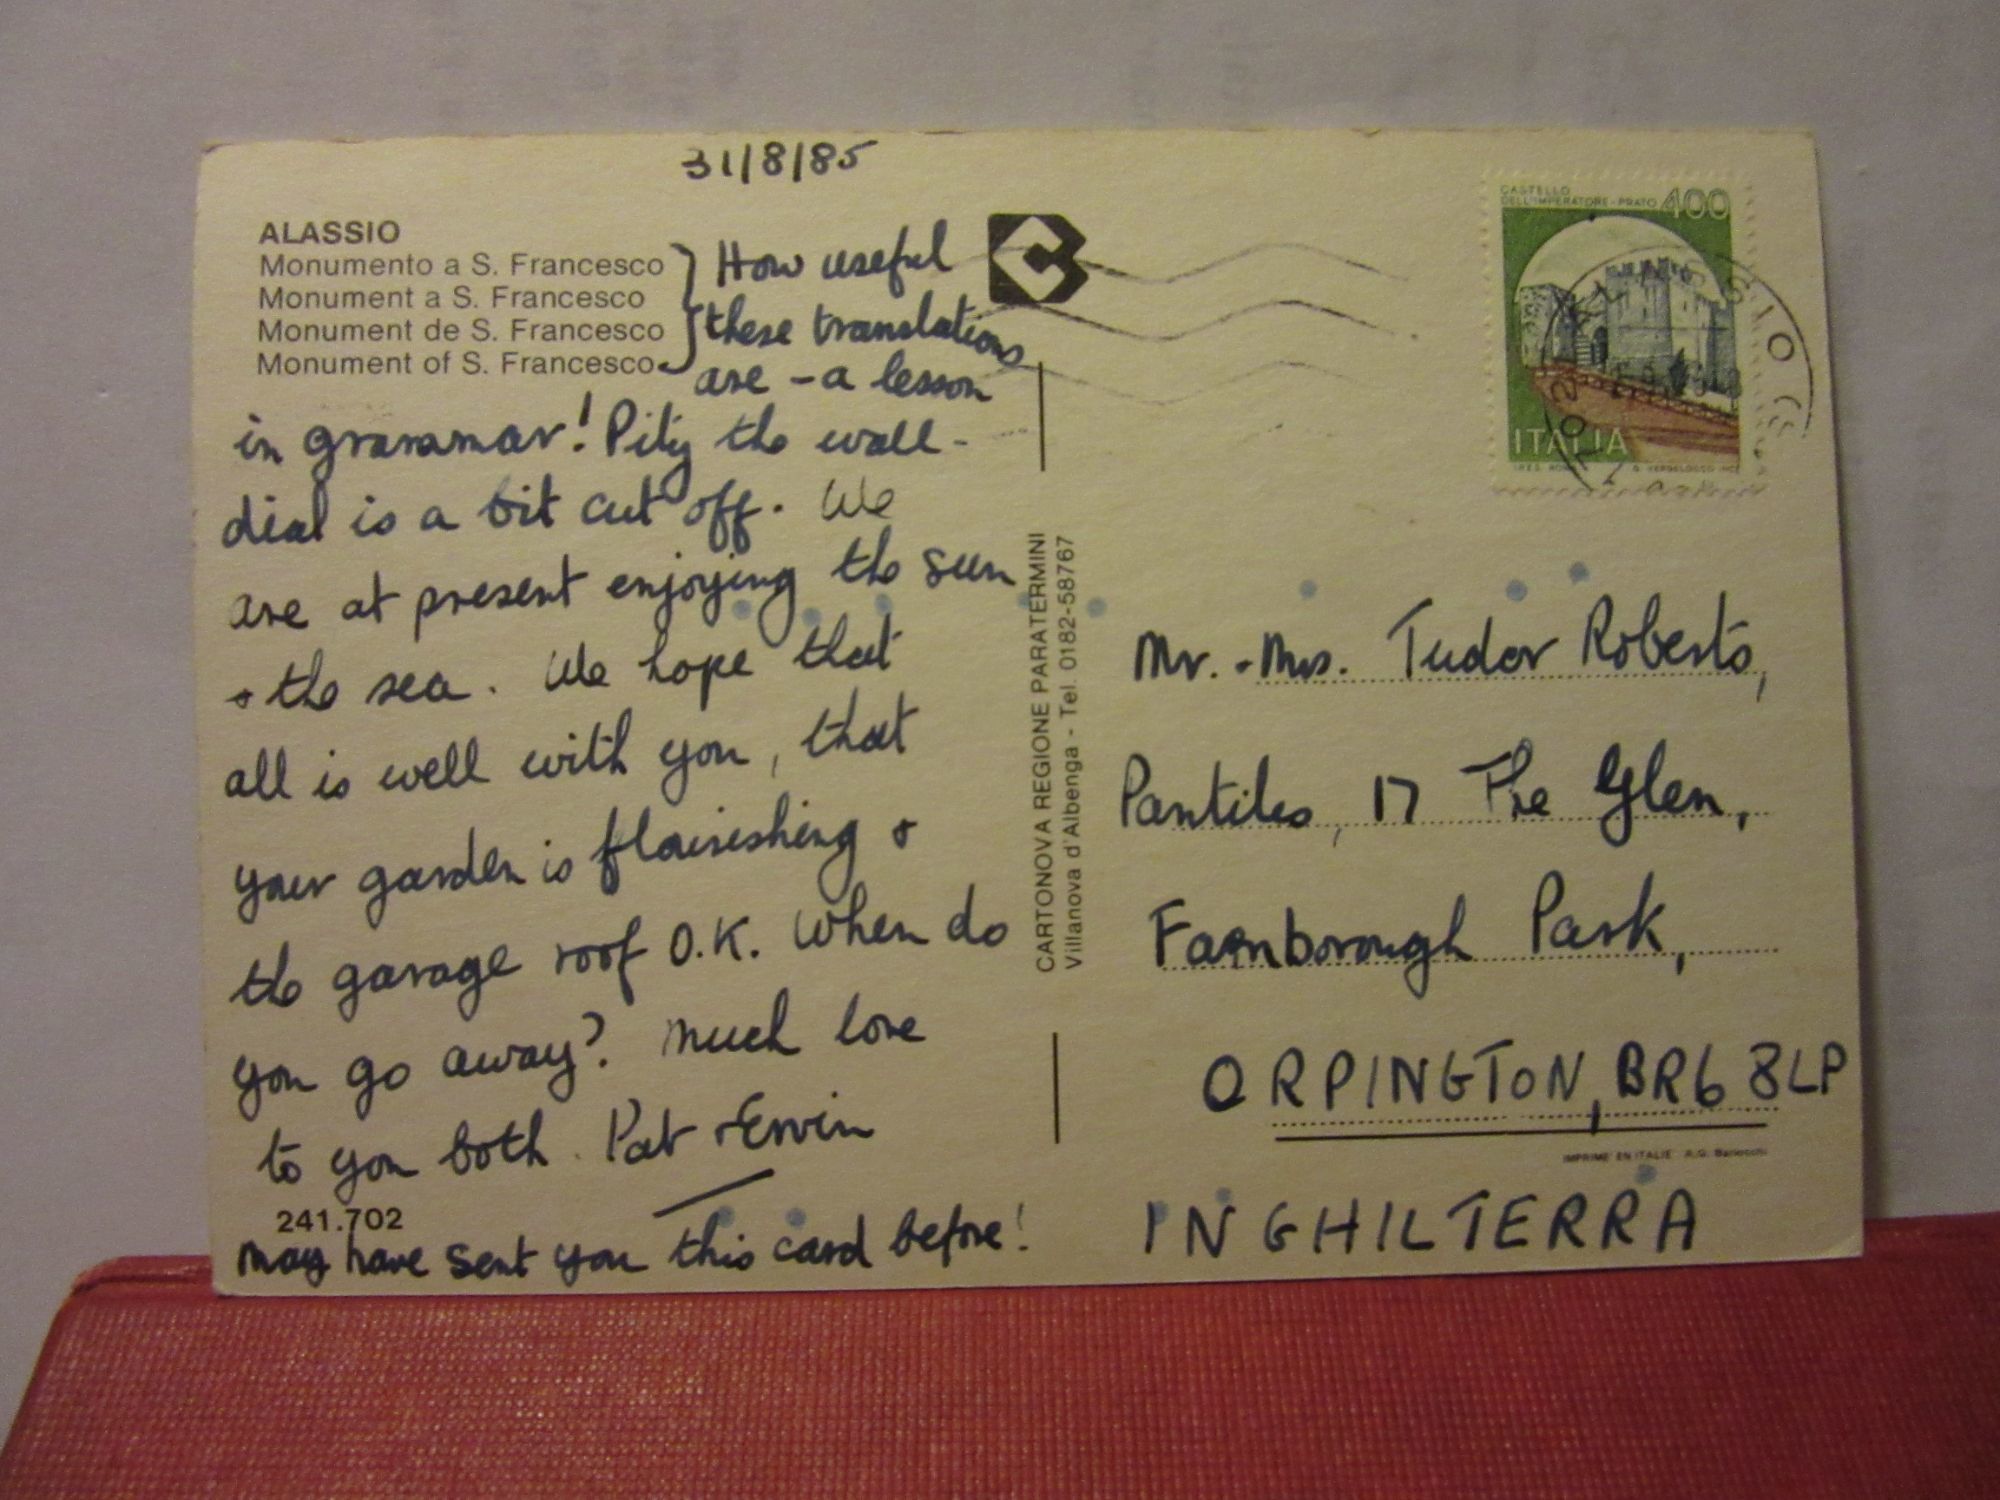 31/8/85
ALASSIO
Monumento a S. Francesco
Monument a S. Francesco
Monument de S. Francesco
Monument of S. Francesco
How useful
these translations
are - a lesson
in grammar! Pity the wall-
dial is a bit cut off. We
are at present enjoying the sun
+ the sea. We hope that
all is well with you, that
your garden is flourishing +
the garage roof O.K. When do
you go away? Much love
to you both. Pat + Ervin
241.702
may have sent you this card before!
CARTONOVA REGIONE PARATERMINI
Villanova d'Albenga - Tel. 0182-58767
CASTELLO
DELL'IMPERATORE - PRATO 400
ITALIA
Mr. + Mrs. Tudor Roberts,
Pantiles, 17 The Glen,
Farnborough Park,
ORPINGTON, BR6 8LP
IMPRIME EN ITALIE
INGHILTERRA